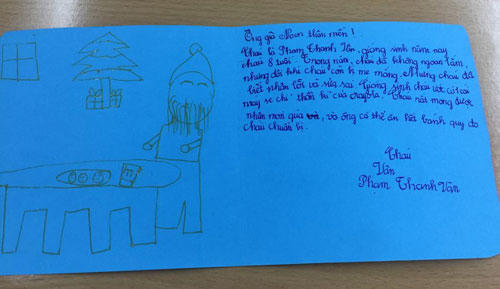 Ông già Noen thân mến!
Cháu là Phạm Thanh Vân, giáng sinh năm nay
cháu 8 tuổi. Trong năm, cháu đã không ngoan lắm,
nhưng đôi khi cháu còn bị mẹ mắng. Nhưng cháu đã
biết nhận lỗi và sửa sai. Giáng sinh cháu ước có cái
máy se chỉ thần kì của crayola. Cháu rất mong được
nhận món quà, và ông có thể ăn hết bánh quy do
cháu chuẩn bị.
Cháu
Vân
Phạm Thanh Vân